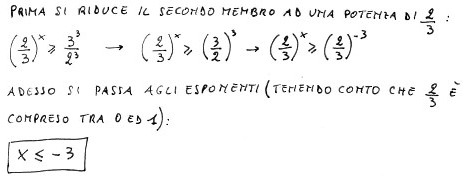 PRIMA SI RIDUCE IL SECONDO MEMBRO AD UNA POTENZA DI 2/3 :
(2/3)^x ≥ 3^3/2^3 → (2/3)^x ≥ (3/2)^3 → (2/3)^x ≥ (2/3)^-3
ADESSO SI PASSA AGLI ESPONENTI (TENENDO CONTO CHE 2/3 È
COMPRESO TRA 0 ED 1):
x ≤ -3